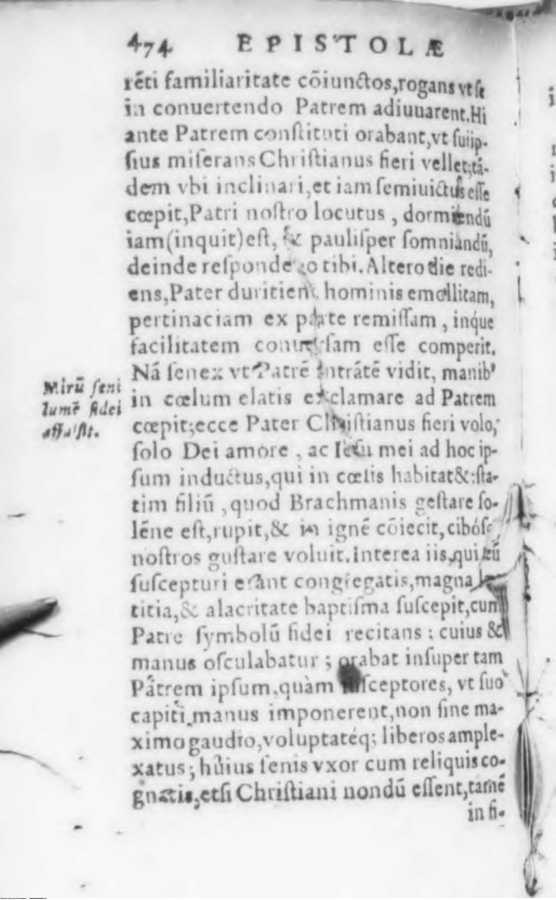 474 EPISTOLÆ
rẽti familiaritate cõiunctos,rogans vt ſe
in conuertendo Patrem adiuuarent.Hi
ante Patrem conſtituti orabant,vt ſuiip-
ſius miſerans Chriſtianus fieri vellet;tã-
dem vbi inclinari,et iam ſemiuictus eſſe
cœpit,Patri noſtro locutus , dormiendũ
iam(inquit)eſt, & pauliſper ſomniandũ,
deinde reſpondebo tibi.Altero die redi-
ens,Pater duritiem hominis emollitam,
pertinaciam ex parte remiſſam , inque
facilitatem conuerſam eſſe comperit.
Nã ſenex vt Patrẽ intrãtẽ vidit, manib⁹
in cœlum elatis exclamare ad Patrem
cœpit;ecce Pater Chriſtianus fieri volo,
ſolo Dei amore , ac Ieſu mei ad hoc ip-
ſum inductus,qui in cœlis habitat&:ſta-
tim filiũ , quod Brachmanis geſtare ſo-
lẽne eſt,rupit,& in ignẽ cõiecit,cibóſq́;
noſtros guſtare voluit.Interea iis,qui eũ
ſuſcepturi erant congregatis,magna læ-
titia,& alacritate baptiſma ſuſcepit,cum
Patre ſymbolũ fidei recitans : cuius &
manus oſculabatur ; orabat inſuper tam
Patrem ipſum,quàm ſuſceptores, vt ſuo
capiti manus imponerent,non ſine ma-
ximo gaudio,voluptateq́; liberos ample-
xatus ; huius ſenis vxor cum reliquis co-
gnatis,etſi Chriſtiani nondũ eſſent,tamẽ
in fi-
Mirũ ſeni
lumẽ fidei
affulſit.